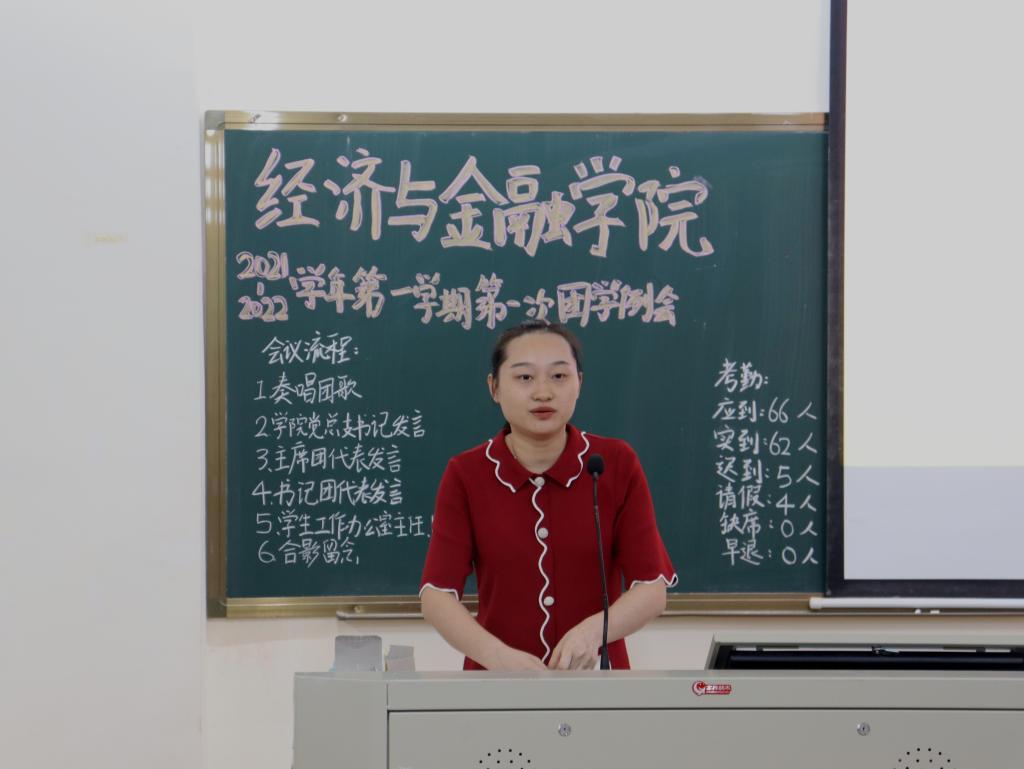 经济与金融学院
2021-2022学年第一学期第一次团学例会
会议流程:
1.奏唱团歌
2.学院党总支书记发言
3.主席团代表发言
4.书记团代表发言
5.学生工作办公室主任
6.合影留念
考勤:
应到:66人
实到:62人
迟到:5人
请假:4人
缺席:0人
早退:0人